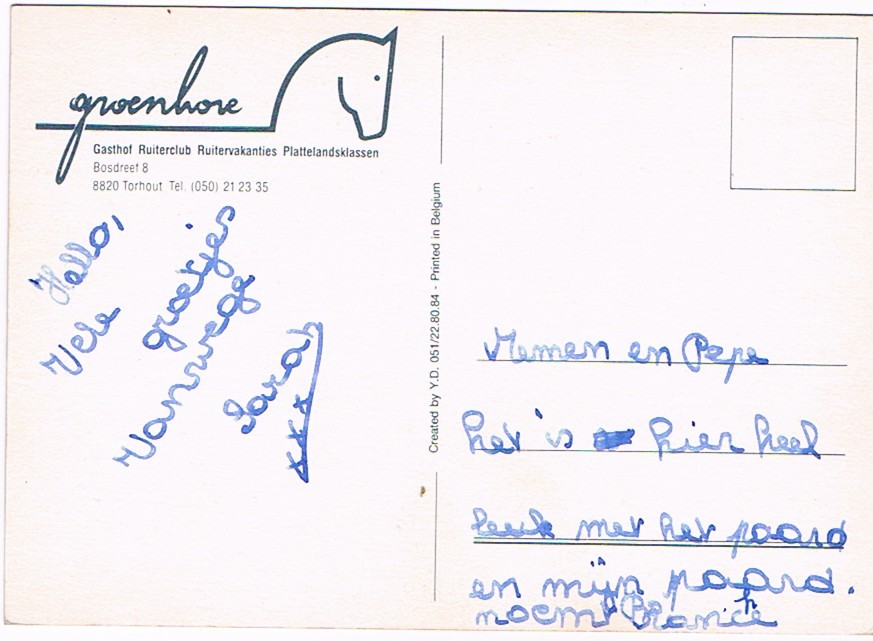 groenhove
Gasthof Ruiterclub Ruitervakanties Plattelandsklassen
Bosdreef 8
8820 Torhout Tel. (050) 21 23 35
Hallo,
Vele
groetjes
Vanwege
Sarah
xxx
Created by Y.D. 051/22.80.84 - Printed in Belgium
Memen en Pepe
het is hier heel
leuk met het paard
en mijn paard.
noemt